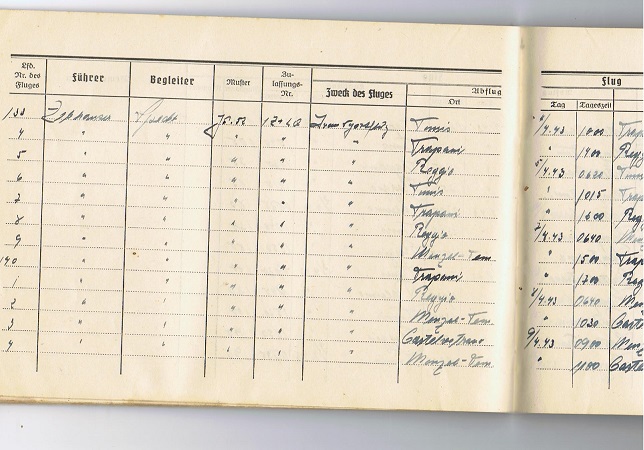 Lfd. Nr. des Fluges Führer Begleiter Muster Zulassungs-Nr. Zweck des Fluges Abflug Ort Flug Tag Tageszeit
133 Ju.52 Tunis /4.43 1000 Trap
4 " " " " " Trapani " 1400 Regg
5 " " " " " Reggio 5/4.43 0620 Tunis
6 " " " " " Tunis " 1015 Trap
7 " " " " " Trapani " 1600 Reg
8 " " " " " Reggio 7/4.43 0640
9 " " " " " Menzel-Tem " 1500 Trap
140 " " " " " Trapani " 1700 Reg
1 " " " " " Reggio /4.43 0640 Men
2 " " " " " Menzel-Tem " 1030 Caste
3 " " " " " 9/4.43 0900 Menz
4 " " " " " Menzel-Tem " 1100 Caste